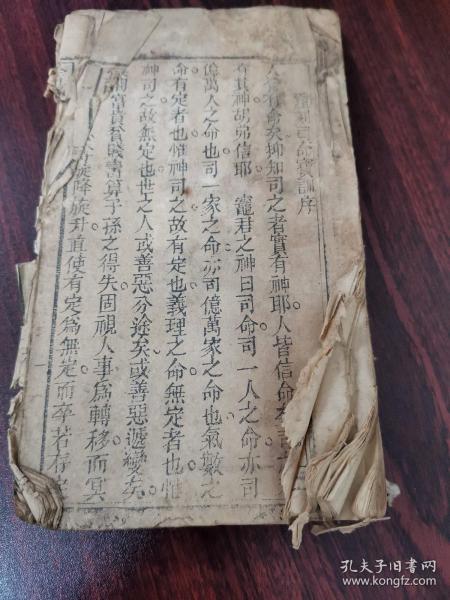 司命寶訓序
有命矣抑知司之者實有神耶人皆信命
有其神胡弗信耶 竈君之神曰司命司一人之命亦司
億萬人之命也司一家之命亦司億萬家之命也氣數之
命有定者也惟神司之故有定也義理之命無定者也惟
神司之故無定也世之人或善惡分途矣或善惡遞變矣
富貴貧賤壽算子孫之得失固視人事為轉移而冥
降旋升直使有定為無定而卒若有定
孔夫子旧书网
www.kongfz.com